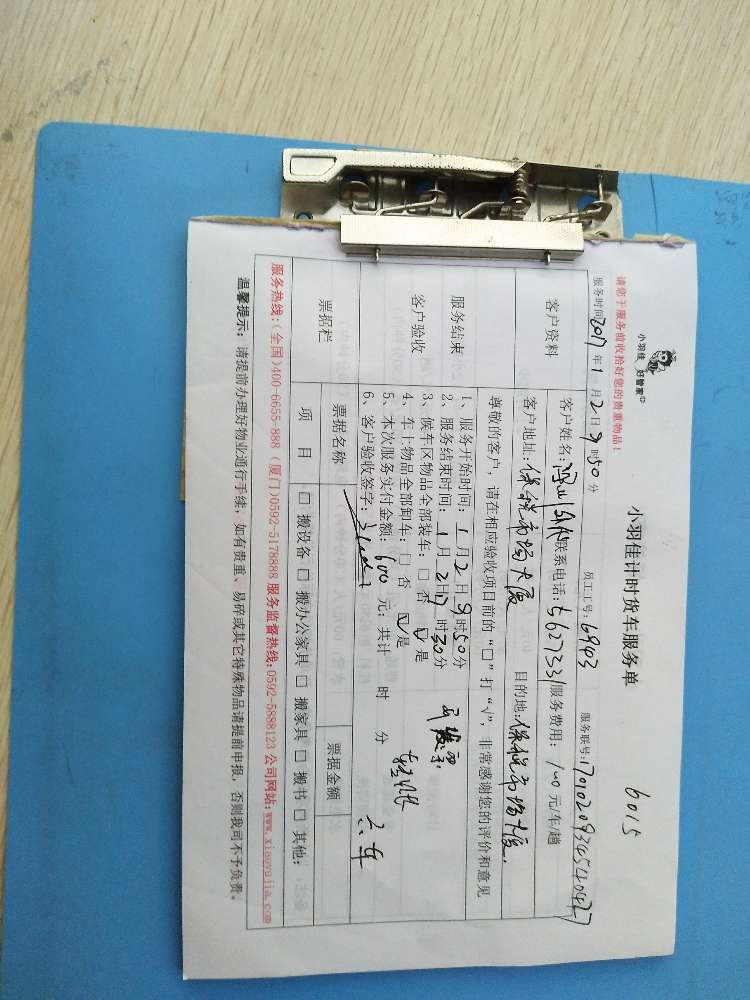 小羽佳 好管家
小羽佳计时货车服务单
6015
请您于服务前收拾好您的贵重物品！
服务时间：2017年1月2日9时50分 员工工号：16943 服务联号：
客户资料
客户姓名： 联系电话：5627331 服务费用：100元/车/趟
客户地址：保税市场大厦 目的地：保税市场大厦
尊敬的客户，请在相应验收项目前的“□”打“√”，非常感谢您的评价和意见
服务结束
客户验收
1、服务开始时间：1月2日9时50分
2、服务结束时间：1月2日17时30分
3、候车区物品全部装车：□否 ☑是
4、车上物品全部卸车：□否 ☑是
5、本次服务实付金额：600元；共计 时 分
6、客户验收签字：
六车
票据栏 票据名称 票据金额
项 目 □搬设备 □搬办公家具 □搬家具 □搬书 □其他：
服务热线：(全国)400-6655-888 (厦门)0592-5178888 服务监督热线：0592-5888123 公司网站：www.xiaoyujia.com
温馨提示：请提前办理好物业通行手续，如有贵重、易碎或其它特殊物品请提前申报，否则我司不予负责。